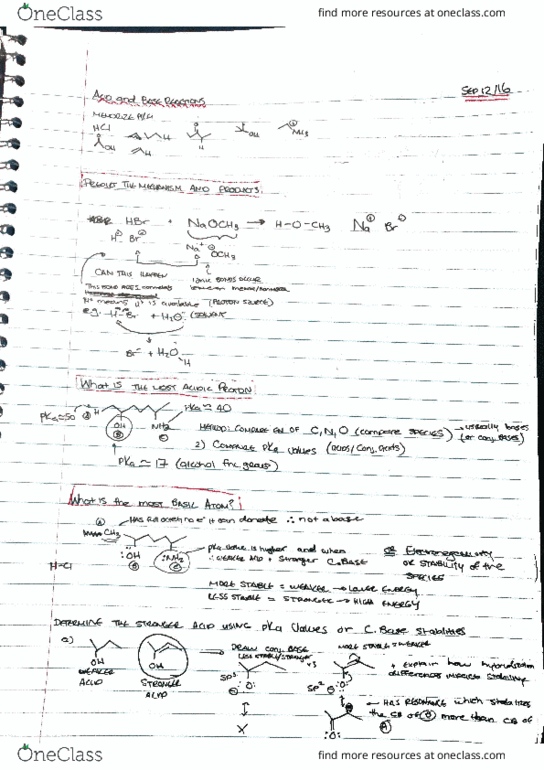 OneClass find more resources at oneclass.com
SEP 12/16
ACID AND BASE REACTIONS
MEMORIZE PKa
HCl
OH H H OH
PREDICT THE MECHANISM AND PRODUCTS:
HBr + NaOCH3 → H-O-CH3 Na⊕ Br⊖
H Br Na+ ⊖OCH3
CAN THIS HAPPEN IONIC BONDS OCCUR
"H" MEANS H+ IS AVAILABLE (PROTON SOLVENT)
e.g. H-Br + H2O (SOLVENT
Br + H2O
H
WHAT IS THE MOST ACIDIC PROTON
PKa≈50 A H PKa≈40
OH B NH2 C
METHOD: COMPARE EN OF C, N, O (COMPARE SPECIES) → USUALLY BASES (OR CONJ. BASES)
2) COMPARE PKa VALUES (ACIDS/CONJ. ACIDS)
PKa ≈ 17 (alcohol fnc. group)
WHAT IS THE MOST BASIC ATOM?
A HAS NO e- it can donate ∴ not a base
CH3
:OH B :NH2 C
PKa VALUE IS HIGHER AND WHEN
∴ WEAKER ACID + STRONGER C.BASE
ELECTRONEGATIVITY
OR STABILITY OF THE
SPECIES
H-Cl
MORE STABLE = WEAKER → LOWER ENERGY
LESS STABLE = STRONGER → HIGH ENERGY
DETERMINE THE STRONGER ACID USING PKa VALUES OR C. BASE STABILITIES
a) OH OH → DRAW CONJ. BASE
LESS STABLE/STRONGER vs MORE STABLE/WEAKER
WEAKER ACID STRONGER ACID
SP3 O: SP2 O:
+ EXPLAIN HOW HYBRIDIZATION
DIFFERENCES IMPARTS STABILITY
X
← HAS RESONANCE WHICH STABILIZES
THE CB OF B MORE THAN CB OF
A
:O:
OneClass find more resources at oneclass.com